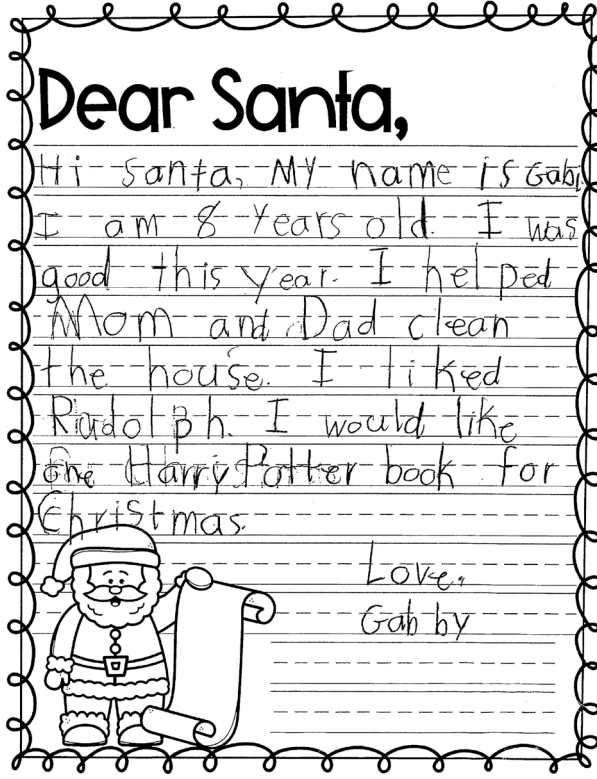 Dear Santa,
Hi Santa, My name is Gabi
I am 8 years old. I was
good this year. I helped
Mom and Dad clean
the house. I liked
Rudolph. I would like
one Harry Potter book for
Christmas.
Love,
Gabby